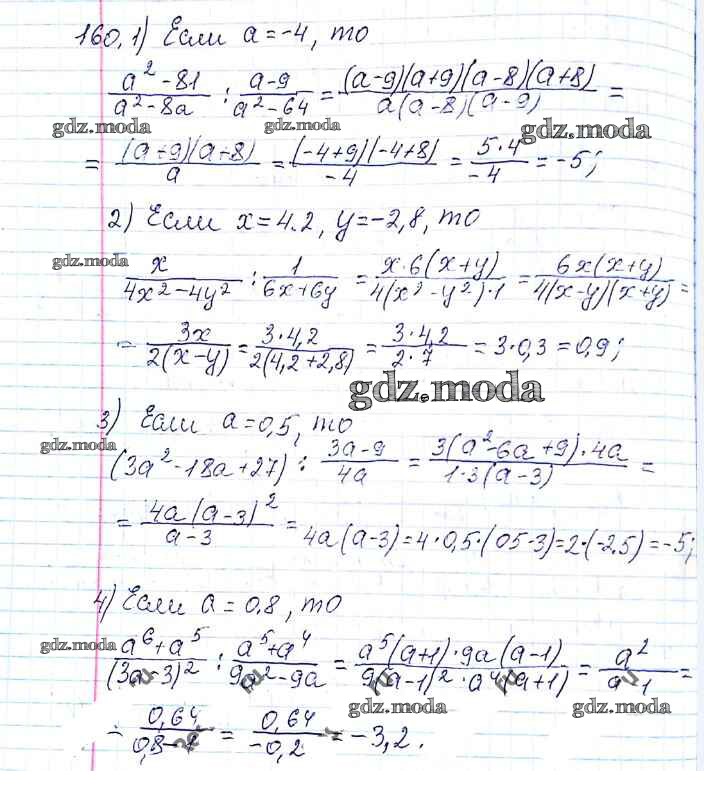 160.1) Если a=-4, то
(a²-81)/(a²-8a) : (a-9)/(a²-64) = ((a-9)(a+9)(a-8)(a+8))/(a(a-8)(a-9)) =
gdz.moda gdz.moda gdz.moda
= ((a+9)(a+8))/a = ((-4+9)(-4+8))/-4 = (5·4)/-4 = -5;
2) Если x=4.2, y=-2,8, то
gdz.moda
x/(4x²-4y²) : 1/(6x+6y) = (x·6(x+y))/(4(x²-y²)·1) = (6x(x+y))/(4(x-y)(x+y)) =
= 3x/(2(x-y)) = (3·4,2)/(2(4,2+2,8)) = (3·4,2)/(2·7) = 3·0,3=0,9;
gdz.moda
3) Если a=0,5, то
gdz.moda
(3a²-18a+27) : (3a-9)/4a = (3(a²-6a+9)·4a)/(1·3(a-3)) =
= (4a(a-3)²)/(a-3) = 4a(a-3)=4·0,5·(05-3)=2·(-2.5)=-5;
4) Если a=0.8, то
gdz.moda
(a⁶+a⁵)/(3a-3)² : (a⁵+a⁴)/(9a²-9a) = (a⁵(a+1)·9a(a-1))/(9(a-1)²·a⁴(a+1)) = a²/(a-1) =
gdz.moda gdz.moda
= 0,64/(0,8-1) = 0,64/-0,2 = -3,2.